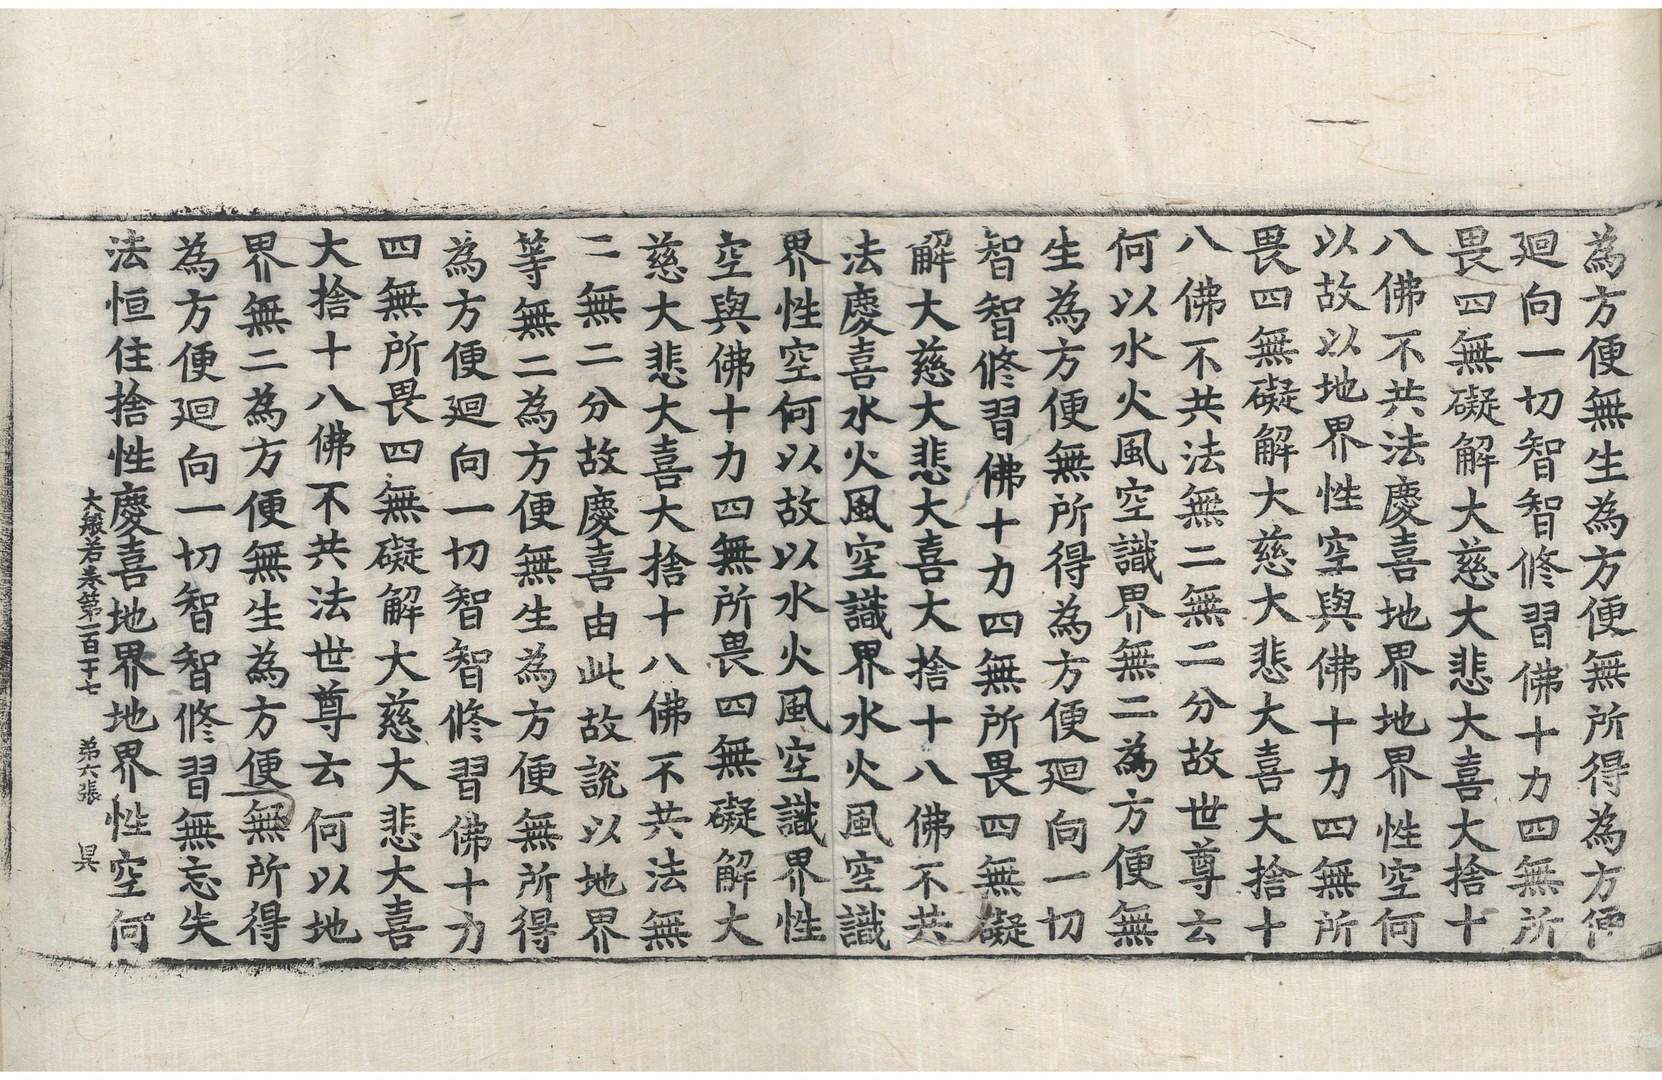 為方便無生為方便無所得為方便
廻向一切智智修習佛十力四無所
畏四無礙解大慈大悲大喜大捨十
八佛不共法慶喜地界地界性空何
以故以地界性空與佛十力四無所
畏四無礙解大慈大悲大喜大捨十
八佛不共法無二無二分故世尊云
何以水火風空識界無二為方便無
生為方便無所得為方便廻向一切
智智修習佛十力四無所畏四無礙
解大慈大悲大喜大捨十八佛不共
法慶喜水火風空識界水火風空識
界性空何以故以水火風空識界性
空與佛十力四無所畏四無礙解大
慈大悲大喜大捨十八佛不共法無
二無二分故慶喜由此故說以地界
等無二為方便無生為方便無所得
為方便廻向一切智智修習佛十力
四無所畏四無礙解大慈大悲大喜
大捨十八佛不共法世尊云何以地
界無二為方便無生為方便無所得
為方便廻向一切智智修習無忘失
法恒住捨性慶喜地界地界性空何
大般若卷第一百十七 第六張 昃